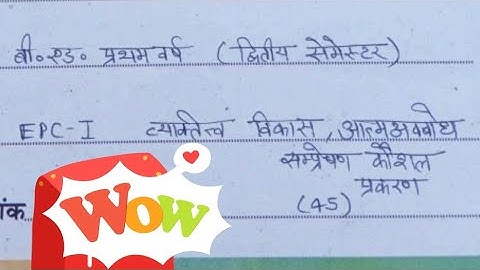 बी०एड० प्रथम वर्ष (द्वितीय सेमेस्टर)
EPC-I व्यक्तित्व विकास, आत्मअवबोध
सम्प्रेषण कौशल
प्रकरण
(45)
ांक
WOW